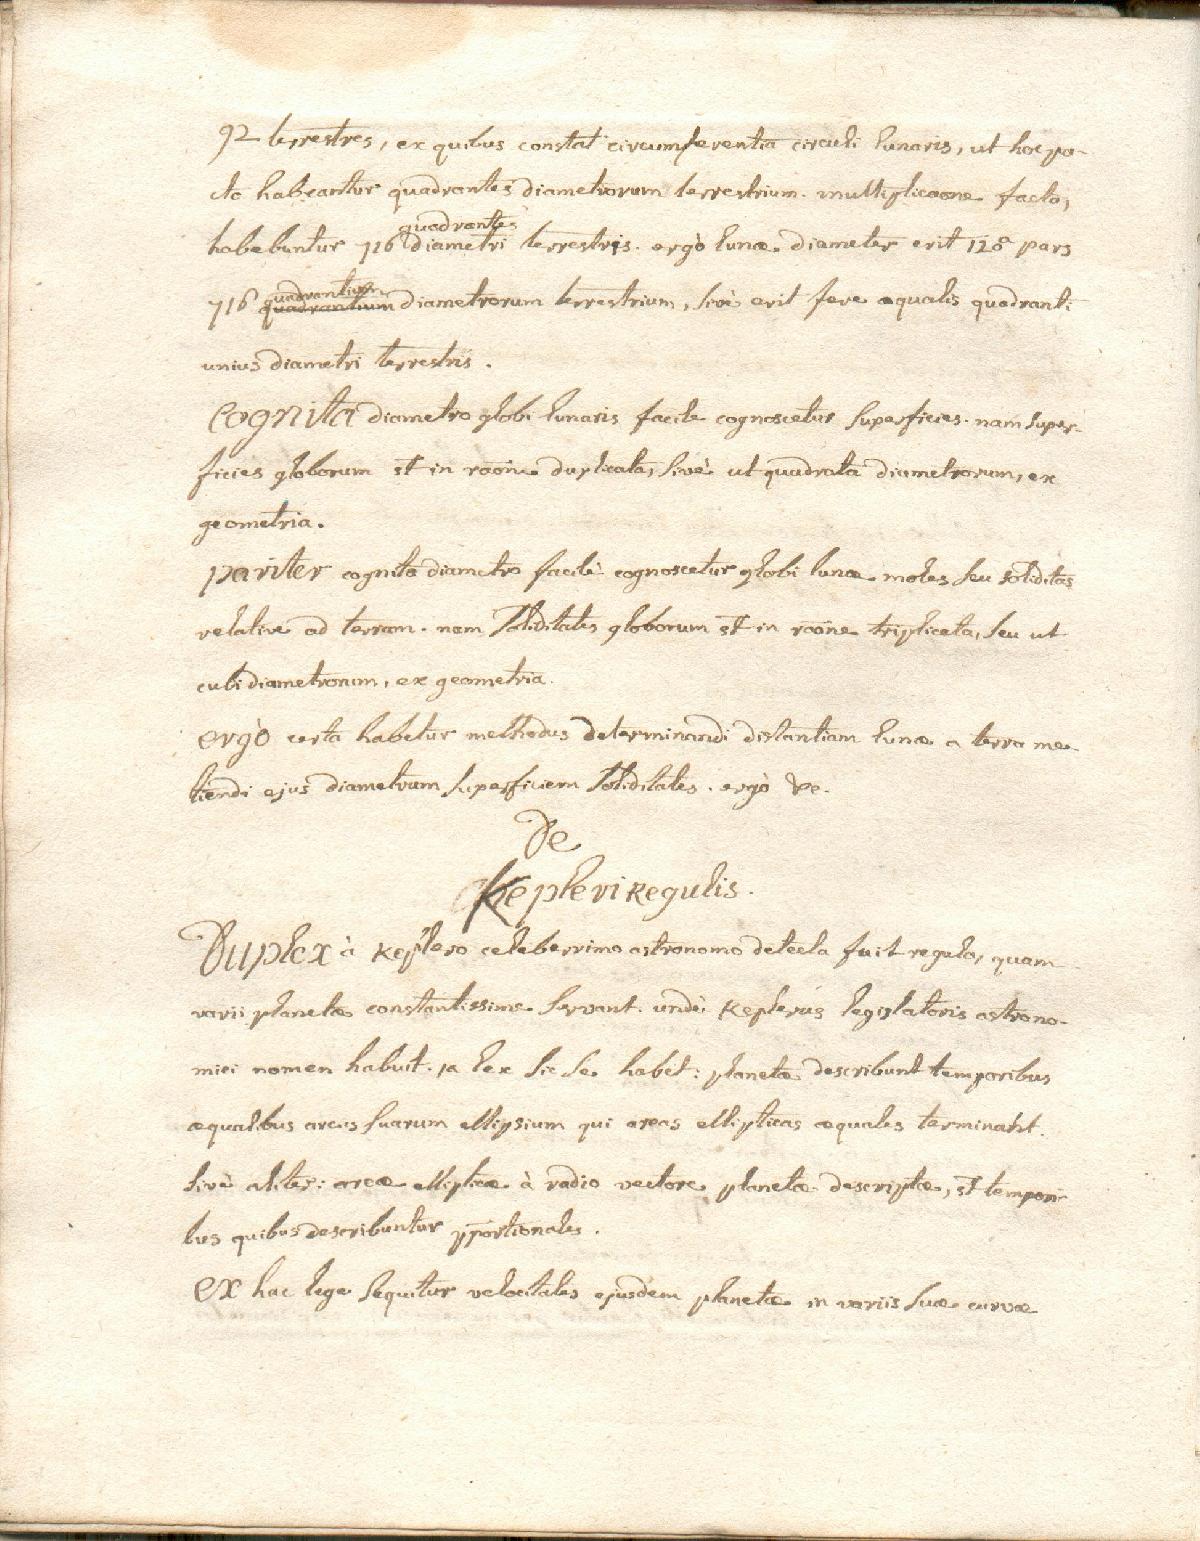 92 terrestres, ex quibus constat circumferentia circuli lunaris, ut hoc pa-
cto habeantur quadrantes diametrorum terrestrium. multiplicaone facto,
quadrantes
habebuntur 716 diametri terrestris. ergò lunæ diameter erit 128ª pars
quadrantium
716 quadrantium diametrorum terrestrium, sivè erit fere æqualis quadranti
unius diametri terrestris.
Cognita diametro globi lunaris facile cognoscetur superficies. nam super-
ficies globorum st in raone duplicata, sivè ut quadrata diametrorum, ex
geometria.
pariter cognita diametro facilè cognoscetur globi lunæ moles seu soliditas
relative ad terram. nam soliditates globorum st in raone triplicata, seu ut
cubi diametrorum, ex geometria.
ergò certa habetur methodus determinandi distantiam lunæ a terra me-
tiendi ejus diametrum superficiem soliditates. ergò &c.
De
Kepleri Regulis.
Duplex à Keplero celeberrimo astronomo detecta fuit regula, quam
varii planetæ constantissime servant. undè Keplerus legislatoris astrono-
mici nomen habuit. 1a lex sic se habet: planetæ describunt temporibus
æqualibus arcus suarum ellipsium qui areas ellipticas æquales terminant.
sivè aliter: areæ ellipticæ à radio vectore planetæ descriptæ, st tempori-
bus quibus describuntur pportionales.
Ex hac lege sequitur velocitates ejusdem planetæ in variis suæ curvæ